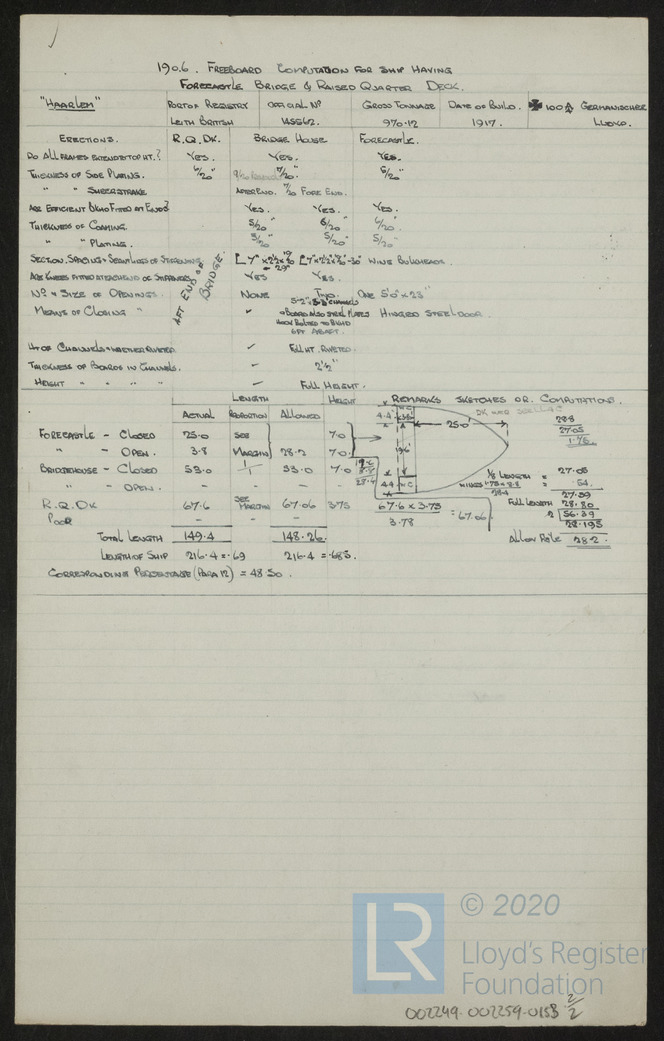 1906. FREEBOARD COMPUTATION FOR SHIP HAVING
FORECASTLE BRIDGE & RAISED QUARTER DECK.
"HAARLEM" PORT OF REGISTRY OFFICIAL Nº GROSS TONNAGE DATE OF BUILD. 100 A GERMANISCHER
LEITH BRITISH 970.12 1917. LLOYD.
ERECTIONS. R.Q.DK. BRIDGE HOUSE FORECASTLE.
DO ALL FRAMES EXTEND TO TOP HT.? YES. YES. YES.
THICKNESS OF SIDE PLATING. 6/20" 7/20" 6/20"
" " SHEERSTRAKE AFTER END. 7/20 FORE END.
ARE EFFICIENT BKHD FITTED AT ENDS? YES. YES. YES.
THICKNESS OF COAMING. 5/20" 6/20" 6/20"
" " PLATING. 5/20" 5/20" 5/20"
SECTION, SPACING & SCANTLINGS OF STIFFENING WING BULKHEADS.
AFT END OF BRIDGE.
ARE KNEES FITTED AT EACH END OF STIFFENERS YES YES.
Nº & SIZE OF OPENINGS. NONE TWO ONE 5'0" x 23"
5'-2" CHANNELS
MEANS OF CLOSING " ✓ & BOARD ALSO STEEL PLATES HINGED STEEL DOOR
HOOK BOLTED TO BKHD
6FT ABAFT.
HT OF CHANNELS & WHETHER RIVETED ✓ FULL HT. RIVETED.
THICKNESS OF BOARDS IN CHANNELS. ✓ 2½"
HEIGHT " " " " ✓ FULL HEIGHT.
LENGTH HEIGHT REMARKS SKETCHES OR COMPUTATIONS.
ACTUAL PROPORTION ALLOWED
FORECASTLE - CLOSED 25.0 SEE 7.0
" - OPEN. 3.8 MARGIN 28.2 7.0
BRIDGEHOUSE - CLOSED 53.0 1 53.0 7.0
" - OPEN.
R.Q.DK 67.6 SEE MARGIN 67.06 3.75
POOP - - -
TOTAL LENGTH 149.4 148.26
LENGTH OF SHIP 216.4 = .69 216.4 = .685.
CORRESPONDING PERCENTAGE (PARA 12) = 48.50.
W.C
4.4
25.0
19.6
4.4 W.C
28.4
67.6 x 3.75
3.78
= 67.06
28.8
27.05
1.75
⅞ LENGTH = 27.05
WINGS 1.75 x 8.8 = .54
28.4 27.59
FULL LENGTH 28.80
2 56.39
28.195
ALLOW FOR 28.2.
LR
© 2020
Lloyd's Register
Foundation
002249-002259-0153 2/2